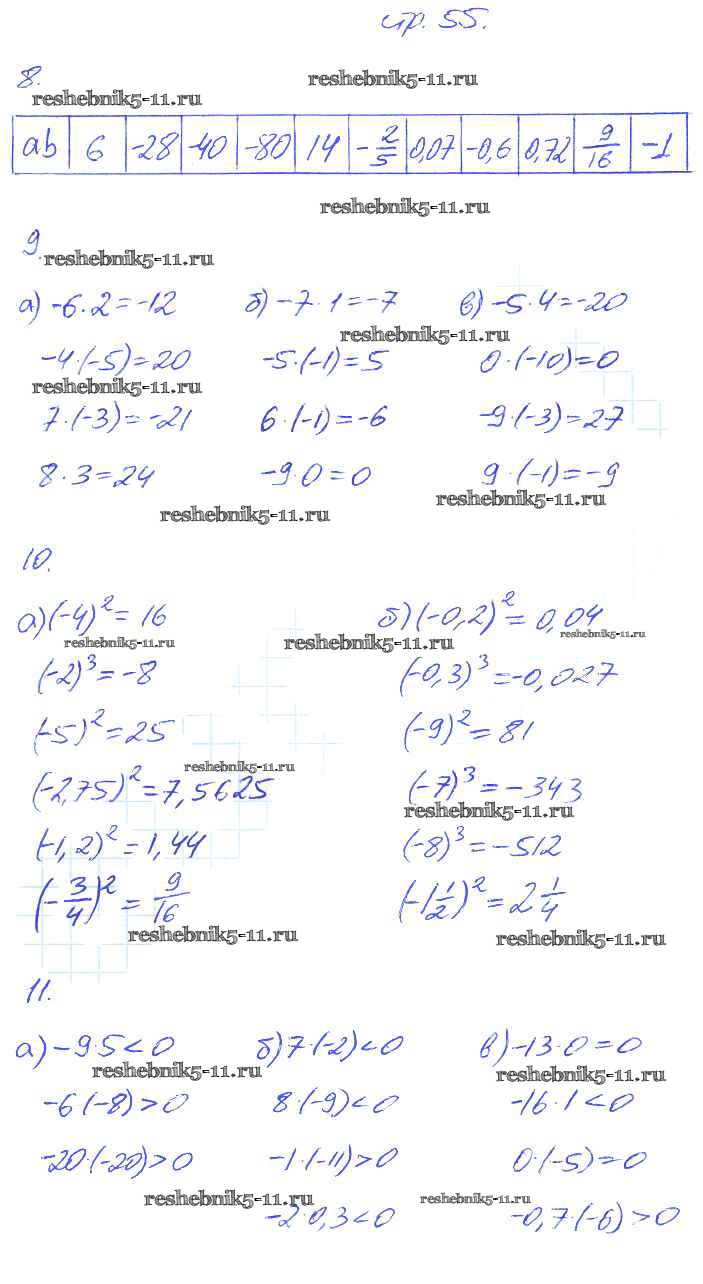 стр. 55.
8.
reshebnik5-11.ru
reshebnik5-11.ru
ab 6 -28 -40 -80 14 -2/5 0,07 -0,6 0,72 9/16 -1
reshebnik5-11.ru
9.
reshebnik5-11.ru
а) -6·2=-12 б) -7·1=-7 в) -5·4=-20
reshebnik5-11.ru
-4·(-5)=20 -5·(-1)=5 0·(-10)=0
reshebnik5-11.ru
7·(-3)=-21 6·(-1)=-6 -9·(-3)=27
8·3=24 -9·0=0 9·(-1)=-9
reshebnik5-11.ru
reshebnik5-11.ru
10.
а) (-4)²=16 б) (-0,2)²=0,04
reshebnik5-11.ru reshebnik5-11.ru reshebnik5-11.ru
(-2)³=-8 (-0,3)³=-0,027
(-5)²=25 (-9)²=81
reshebnik5-11.ru
(-2,75)²=7,5625 (-7)³=-343
reshebnik5-11.ru
(-1,2)²=1,44 (-8)³=-512
(-3/4)²=9/16 (-1 1/2)²=2 1/4
reshebnik5-11.ru reshebnik5-11.ru
11.
а) -9·5<0 б) 7·(-2)<0 в) -13·0=0
reshebnik5-11.ru reshebnik5-11.ru
-6(-8)>0 8·(-9)<0 -16·1<0
-20·(-20)>0 -1·(-11)>0 0·(-5)=0
reshebnik5-11.ru reshebnik5-11.ru
-2·0,3<0 -0,7·(-6)>0